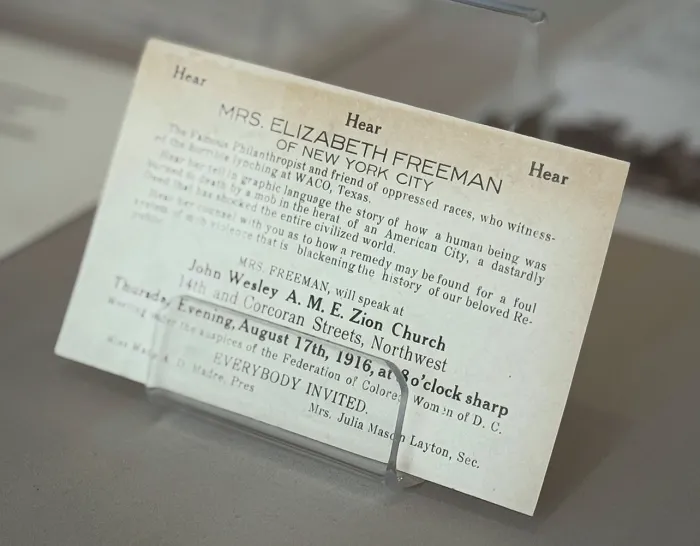 Hear Hear Hear
MRS. ELIZABETH FREEMAN
OF NEW YORK CITY
The Famous Philanthropist and friend of oppressed races, who witness-
ed the horrible lynching at WACO, Texas.
Hear her tell in graphic language the story of how a human being was
burned to death by a mob in the herat of an American City, a dastardly
deed that has shocked the entire civilized world.
Hear her counsel with you as to how a remedy may be found for a foul
system of mob violence that is blackening the history of our beloved Re-
public
MRS. FREEMAN, will speak at
John Wesley A. M. E. Zion Church
14th and Corcoran Streets, Northwest
Thursday Evening, August 17th, 1916, at 8 o'clock sharp
Meeting under the auspices of the Federation of Colored Women of D. C.
EVERYBODY INVITED.
Miss Mary A. D. Madre, Pres
Mrs. Julia Mason Layton, Sec.